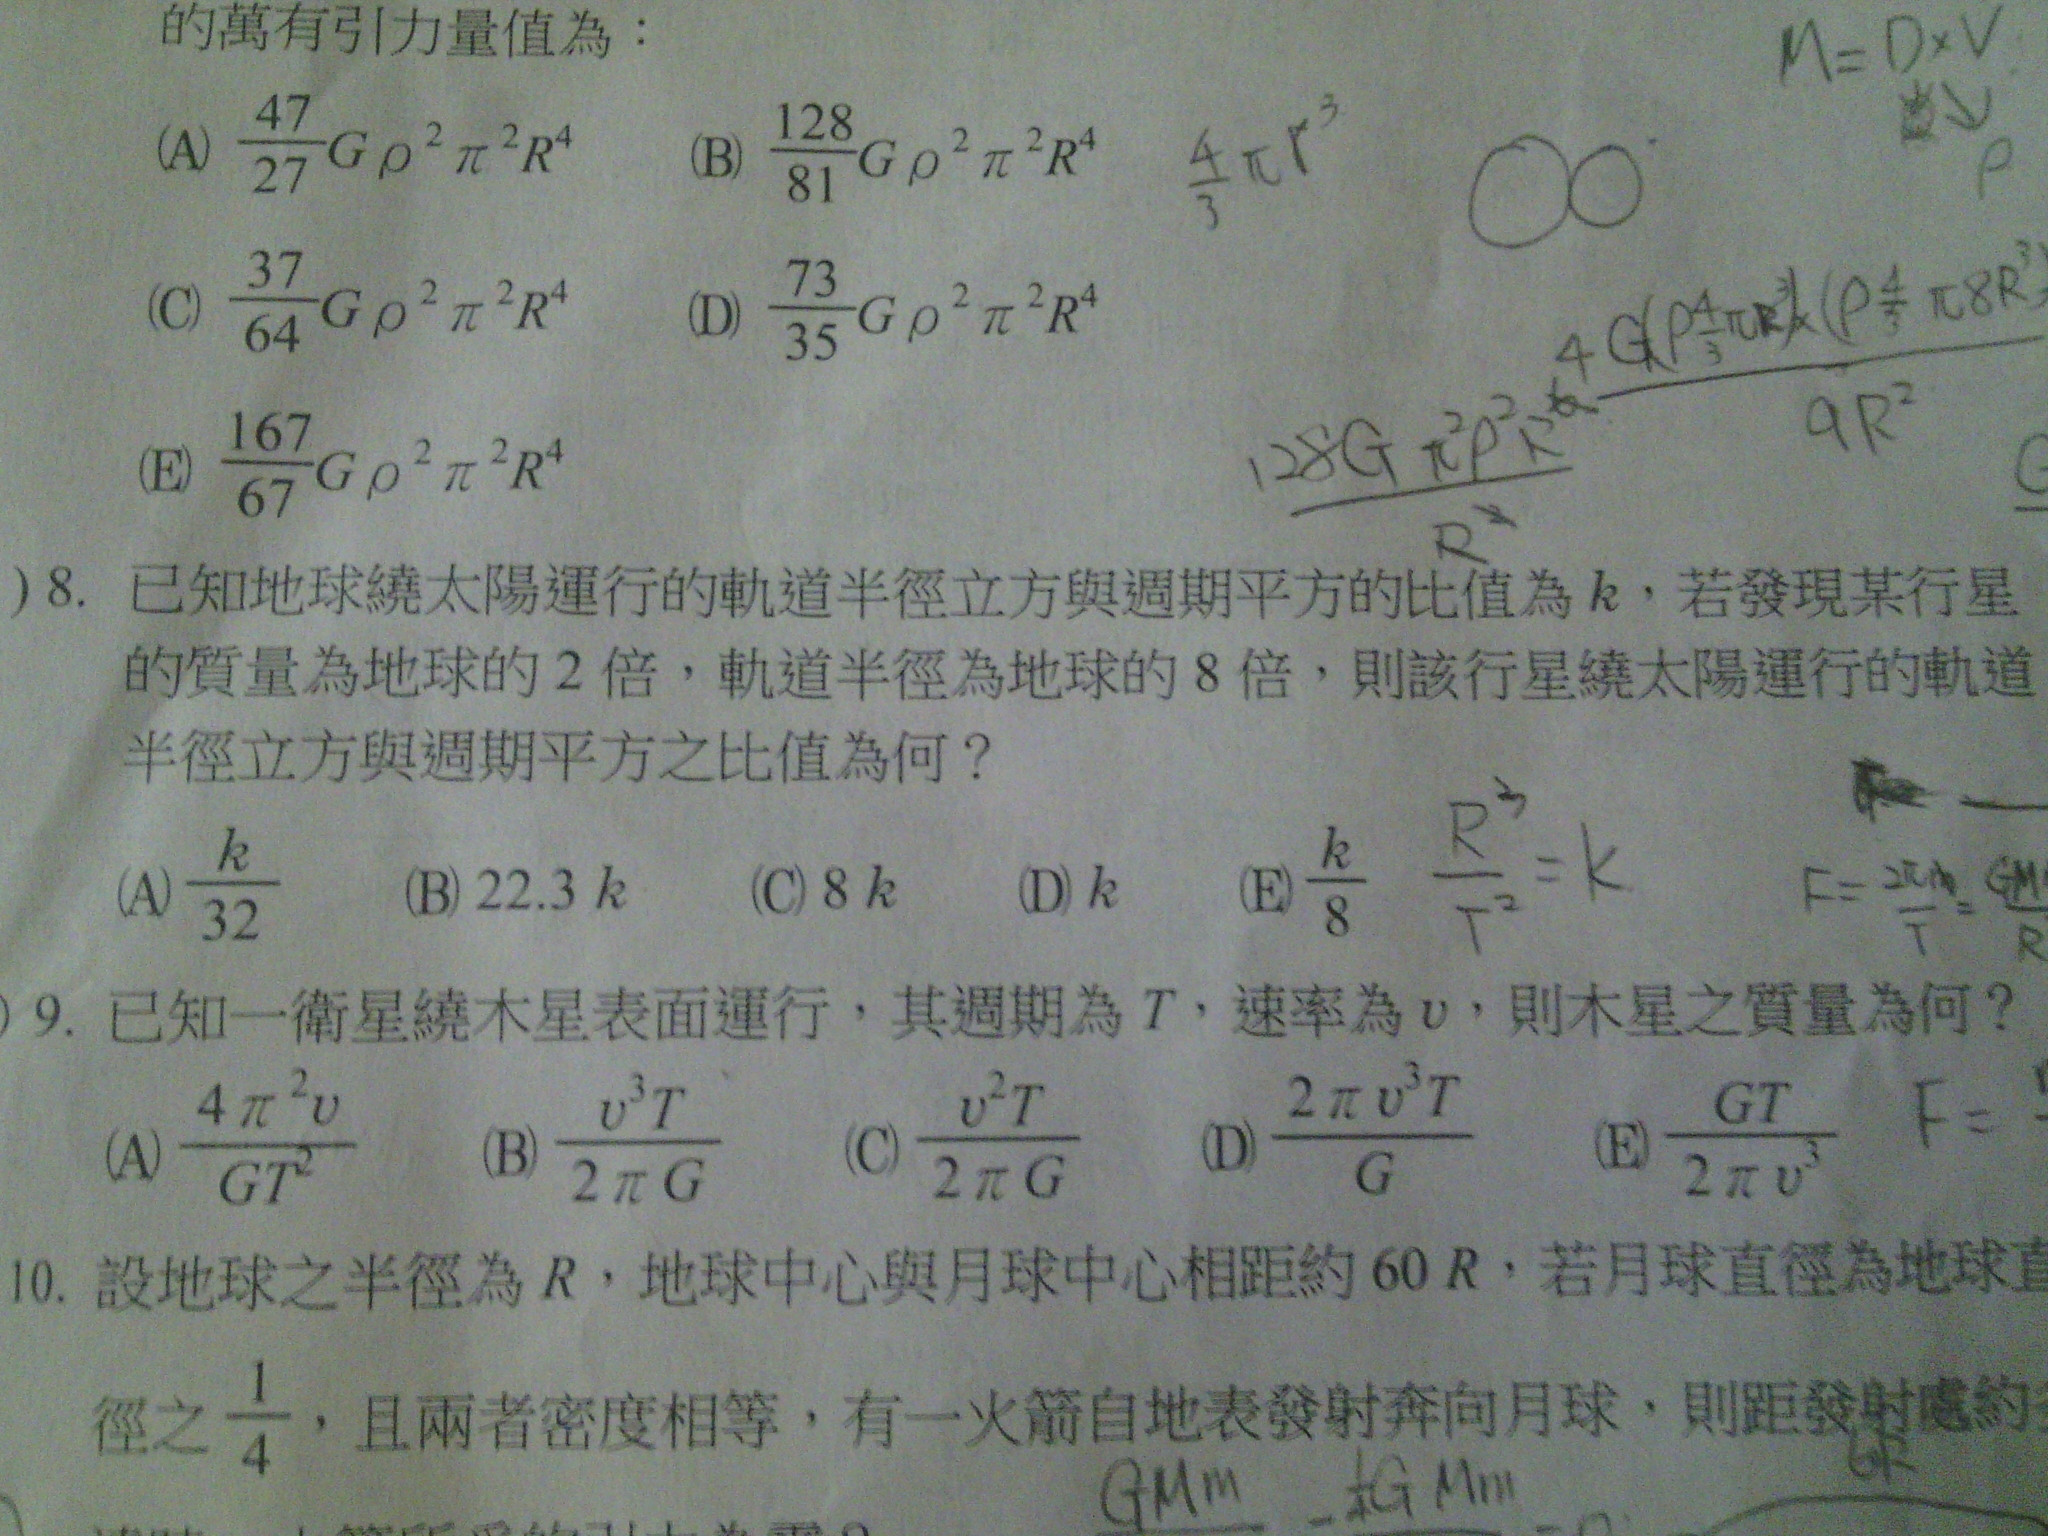 的萬有引力量值為：
M=D×V
ρ
(A) 47/27 Gρ²π²R⁴ (B) 128/81 Gρ²π²R⁴
4/3 πr³
(C) 37/64 Gρ²π²R⁴ (D) 73/35 Gρ²π²R⁴
G(ρ4/3πR³)×(ρ4/3π8R³)
9R²
(E) 167/67 Gρ²π²R⁴
128Gπ²ρ²R
R²
)8. 已知地球繞太陽運行的軌道半徑立方與週期平方的比值為 k，若發現某行星
的質量為地球的 2 倍，軌道半徑為地球的 8 倍，則該行星繞太陽運行的軌道
半徑立方與週期平方之比值為何？
(A) k/32 (B) 22.3 k (C) 8 k (D) k (E) k/8
R³/T² = k
)9. 已知一衛星繞木星表面運行，其週期為 T，速率為 υ，則木星之質量為何？
(A) 4π²υ/GT² (B) υ³T/2πG (C) υ²T/2πG (D) 2πυ³T/G (E) GT/2πυ³
F=
10. 設地球之半徑為 R，地球中心與月球中心相距約 60 R，若月球直徑為地球直
徑之 1/4，且兩者密度相等，有一火箭自地表發射奔向月球，則距發射處約
GMm
G Mm